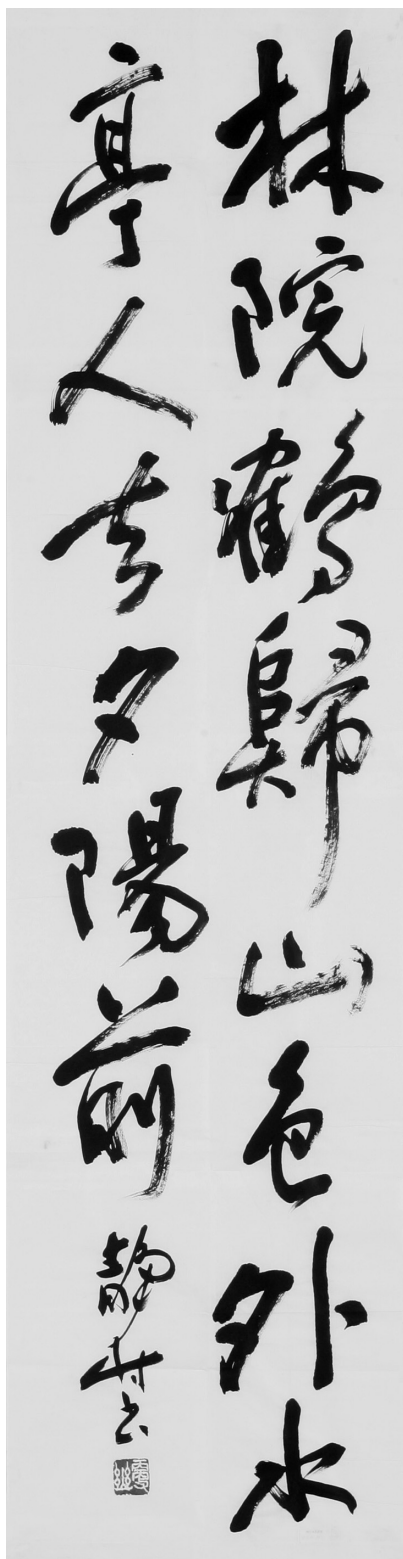 林院鶴歸山色外水
亭人去夕陽前
静村書